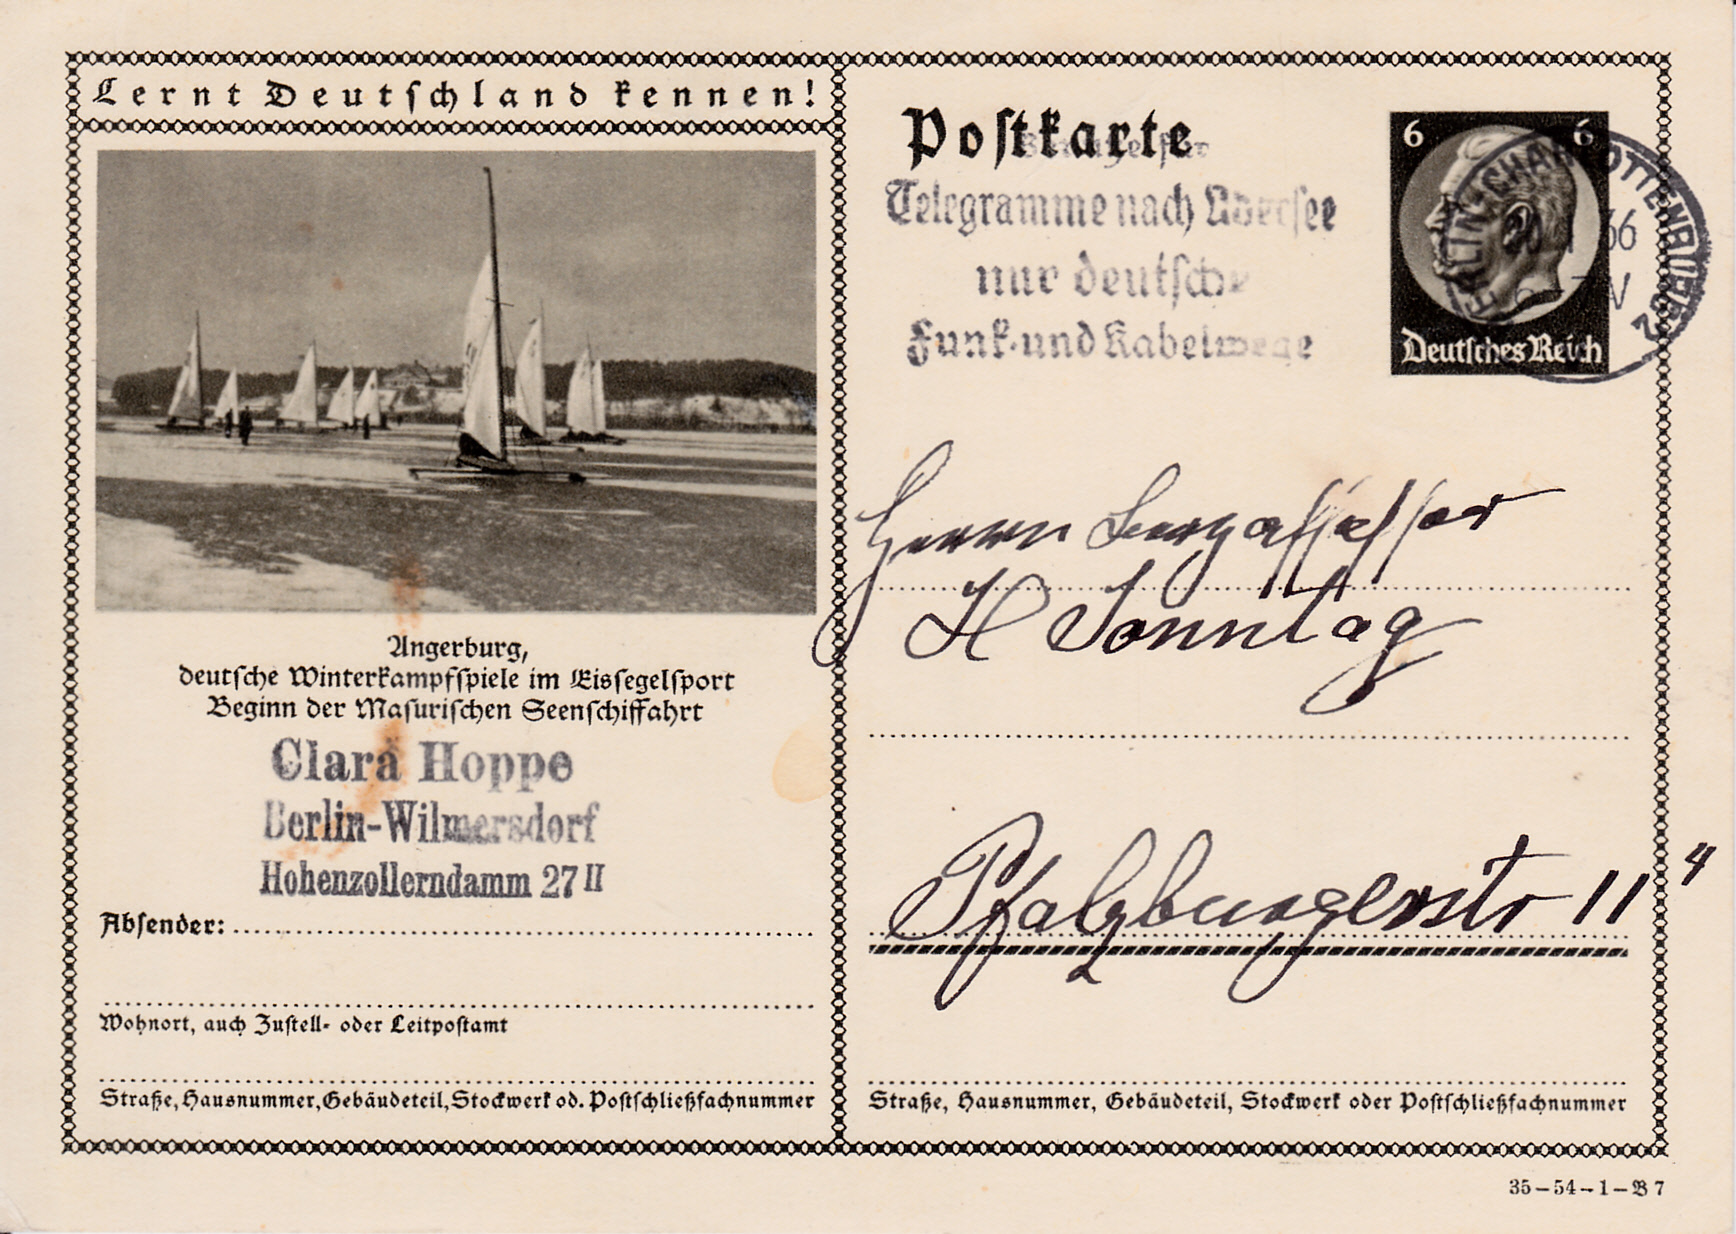 Lernt Deutschland kennen!
Angerburg,
deutsche Winterkampfspiele im Eissegelsport
Beginn der Masurischen Seenschiffahrt
Clara Hoppe
Berlin-Wilmersdorf
Hohenzollerndamm 27 II
Absender:
Wohnort, auch Zustell- oder Leitpostamt
Straße, Hausnummer, Gebäudeteil, Stockwerk od. Postschließfachnummer
Postkarte
Telegramme nach Übersee
nur deutsche
Funk- und Kabelwege
6 6
Deutsches Reich
BERLIN-CHARLOTTENBURG 2
36
Herrn Bergassessor
H Sonntag
Pfalzburgerstr 11
Straße, Hausnummer, Gebäudeteil, Stockwerk oder Postschließfachnummer
35-54-1-B 7